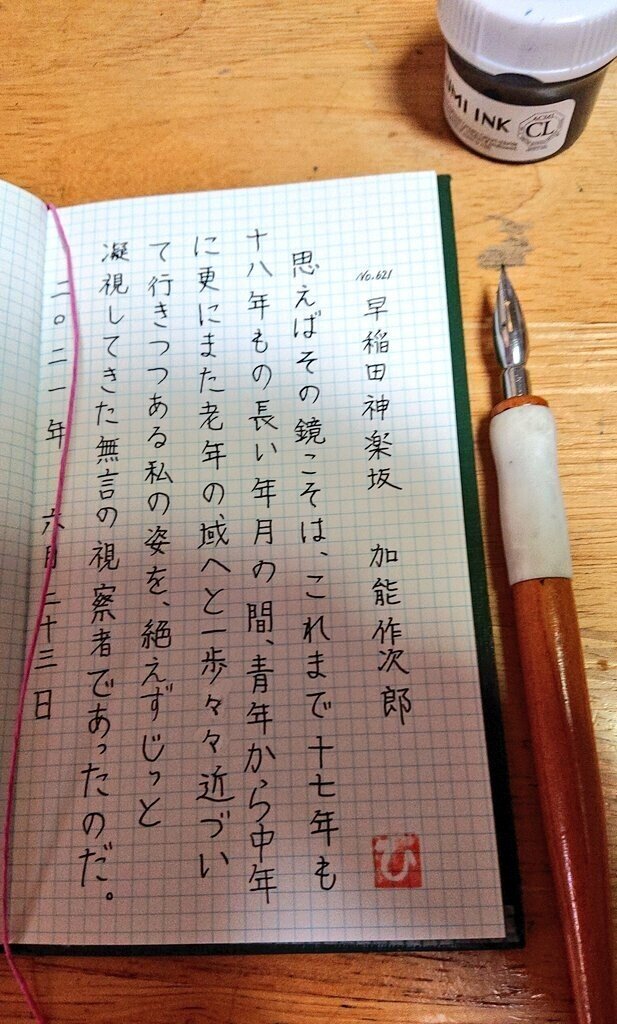 No.621
早稲田神楽坂　加能作次郎
思えばその鏡こそは、これまで十七年も
十八年もの長い年月の間、青年から中年
に更にまた老年の域へと一歩々々近づい
て行きつつある私の姿を、絶えずじっと
凝視してきた無言の視察者であったのだ。
二〇二一年　六月二十三日
ひ
UMI INK
ACMI
CL